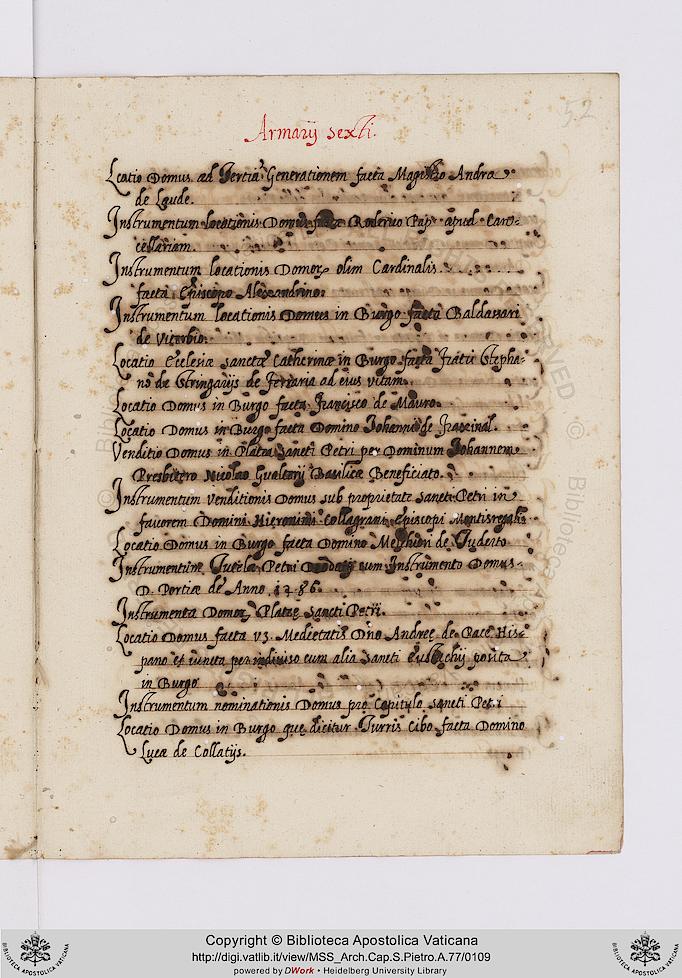 52
Armarij sexti.
Lcatio Domus ad Tertia Generationem facta Magistro Andra
de Laude.
Instrumentum locationis Domus factæ Roderico Pap apud Can-
cellariam.
Instrumentum locationis Domor olim Cardinalis
facta Episcopo Alexandrino.
Instrumentum locationis Domus in Burgo facta Baldassari
de Viterbio.
Locatio Ecclesiæ sanctæ Catherinæ in Burgo facta Fratri Stepha-
no de Stringarijs de Ferraria ad eius vitam.
Locatio Domus in Burgo facta Francisco de Mauro.
Locatio Domus in Burgo facta Domino Johanni de
Venditio Domus in Platea Sancti Petri per Dominum Johannem
Presbitero Nicolao Gualterij Basilicæ Beneficiato.
Instrumentum venditionis Domus sub proprietate sancti Petri in
favorem Domini Hieronimi Episcopi Montisregalis
Locatio Domus in Burgo facta Domino de Tuderto
Instrumentum Tutelæ Petri cum Instrumento Domus
D. Portiæ de Anno 1486.
Instrumenta Domor Plateæ Sancti Petri
Locatio Domus facta vs. Medietatis Dno Andreę de Pace His-
pano et iuncta per indiviso cum alia Sancti Eustachij posita
in Burgo
Instrumentum nominationis Domus pro Capitulo sancti Petri
Locatio Domus in Burgo quę dicitur Turris Cibo facta Domino
Lucæ de Collatijs.
Copyright © Biblioteca Apostolica Vaticana
http://digi.vatlib.it/view/MSS_Arch.Cap.S.Pietro.A.77/0109
powered by DWork • Heidelberg University Library